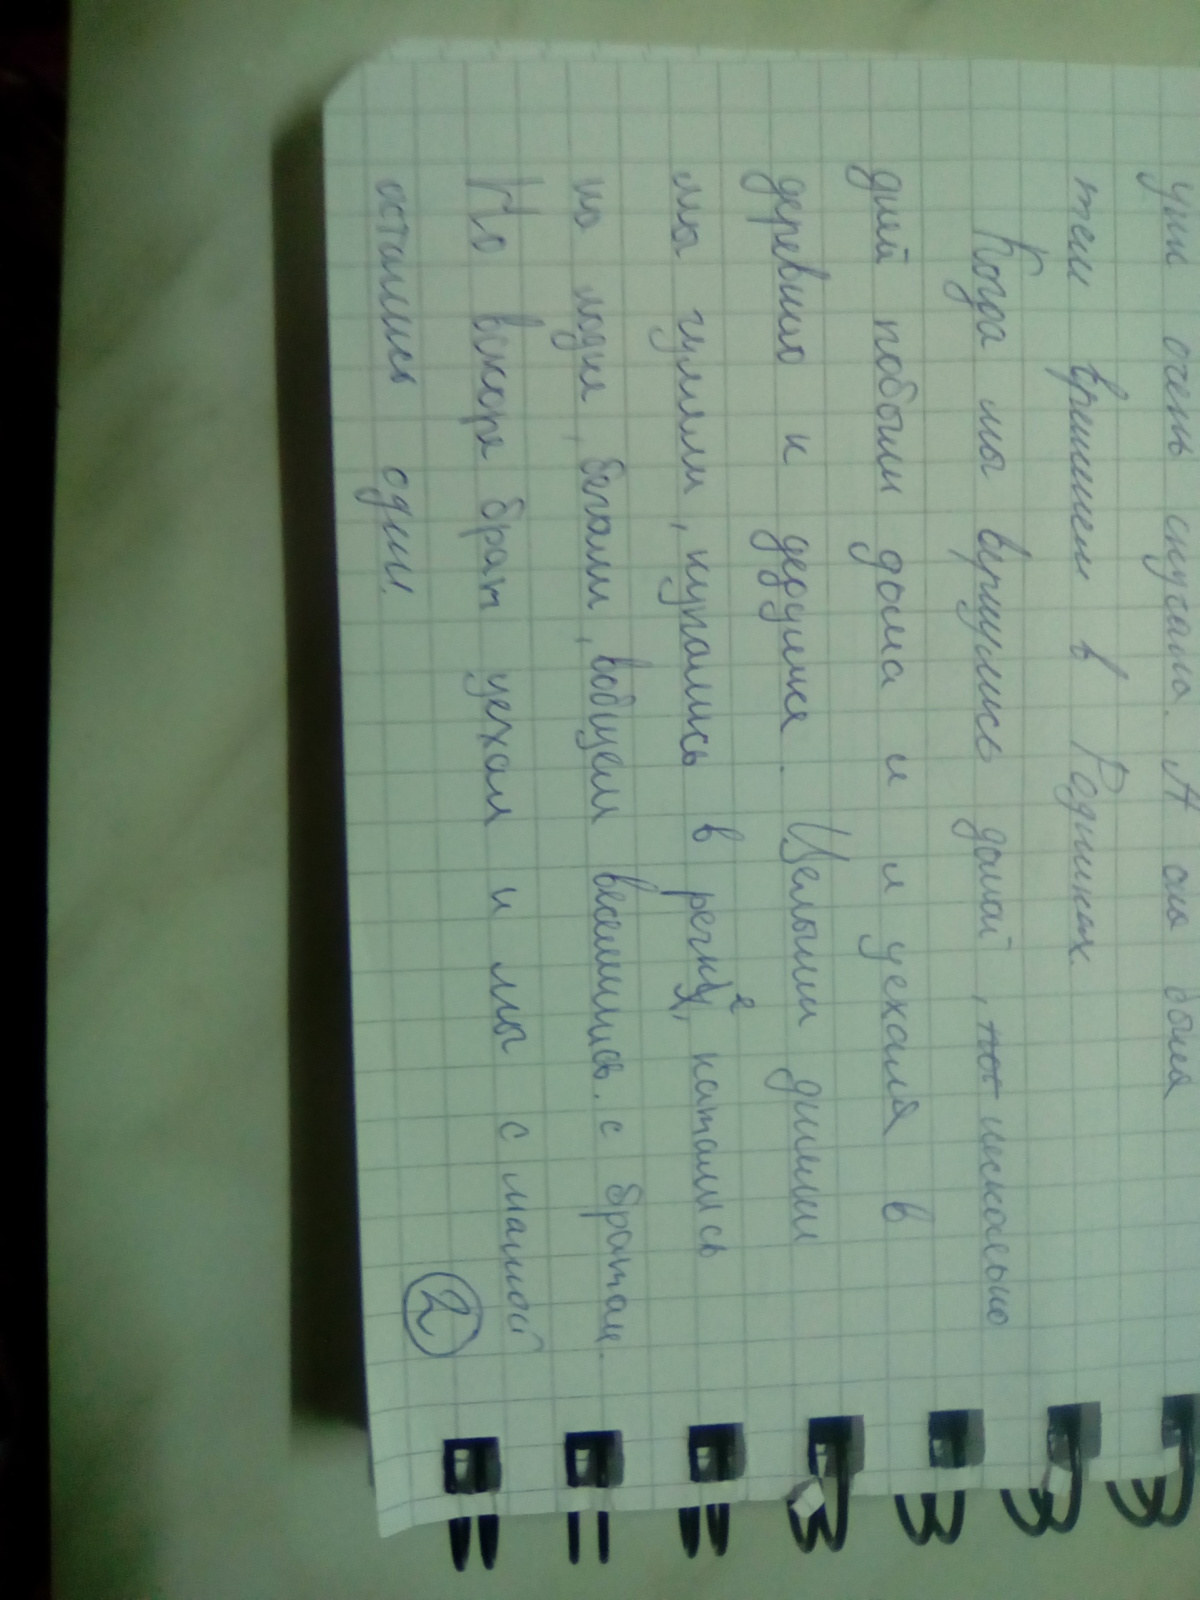 уже очень скучала. А она была
тем временем в Родниках.
Когда мы вернулись домой, несколько
дней побыли дома и я уехала в
деревню к дедушке. Целыми днями
мы гуляли, купались в речке, катались
на лодке, бегали, вобщем веселились с братом.
Но вскоре брат уехал и мы с мамой
остались одни.
2